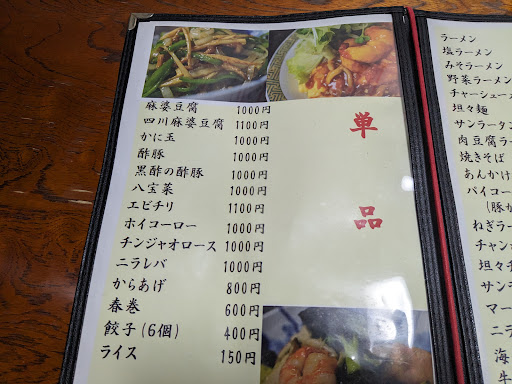 麻婆豆腐 1000円
四川麻婆豆腐 1100円
かに玉 1000円
酢豚 1000円
黒酢の酢豚 1000円
八宝菜 1000円
エビチリ 1100円
ホイコーロー 1000円
チンジャオロース 1000円
ニラレバ 1000円
からあげ 800円
春巻 600円
餃子(6個) 400円
ライス 150円
単品
ラーメン
塩ラーメン
みそラーメン
野菜ラーメン
チャーシューメ
坦々麺
サンラータン
肉豆腐ラー
焼きそば
あんかけ
パイコー
(豚か
ねぎラー
チャン
坦々チ
サンラ
マー
ニラ
海
牛